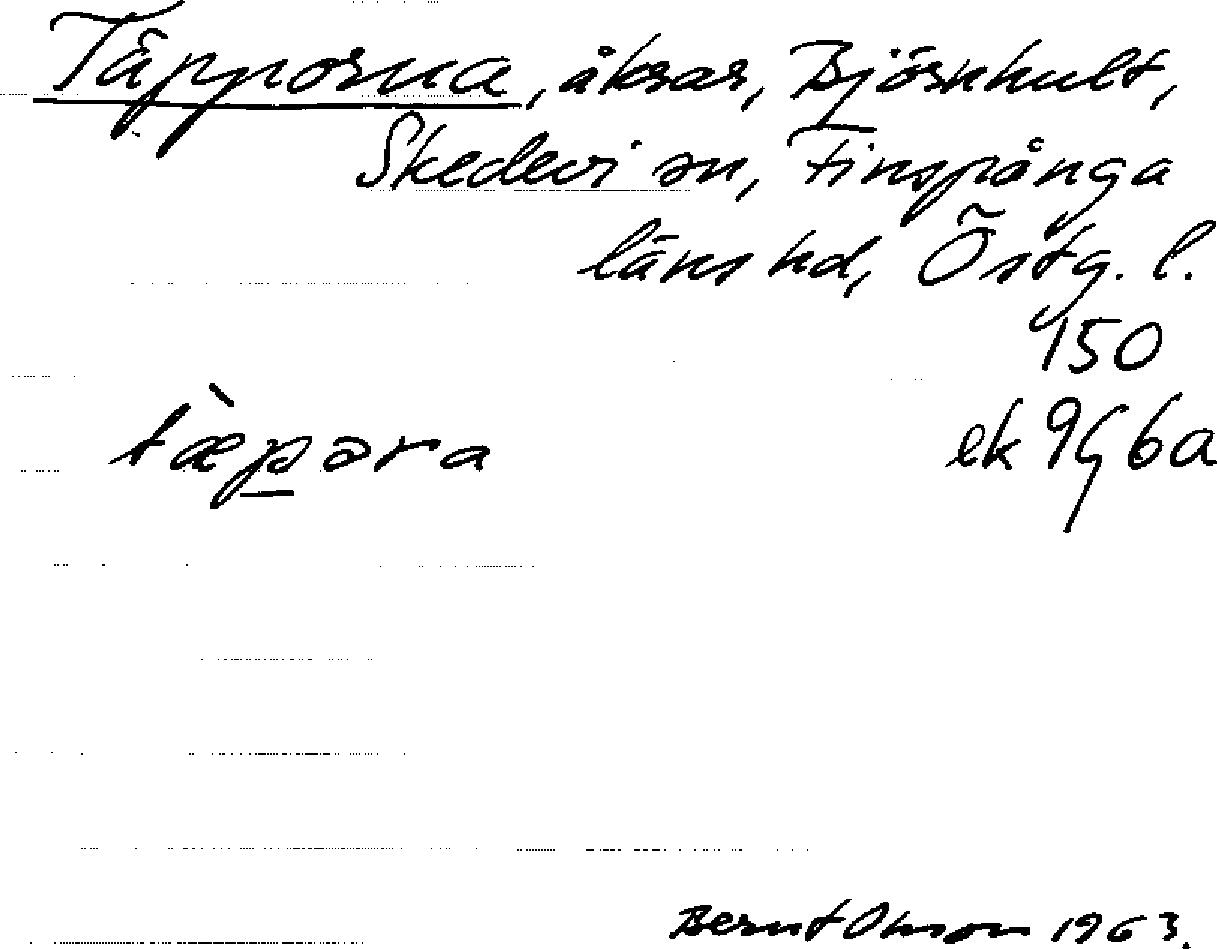 Täpporna, åkrar, Björnhult,
Skedevi sn, Finspånga
läns hd, Östg. l.
150
tæ̀p̲əra
ek 9G6a
Bernt Olsson 1963.